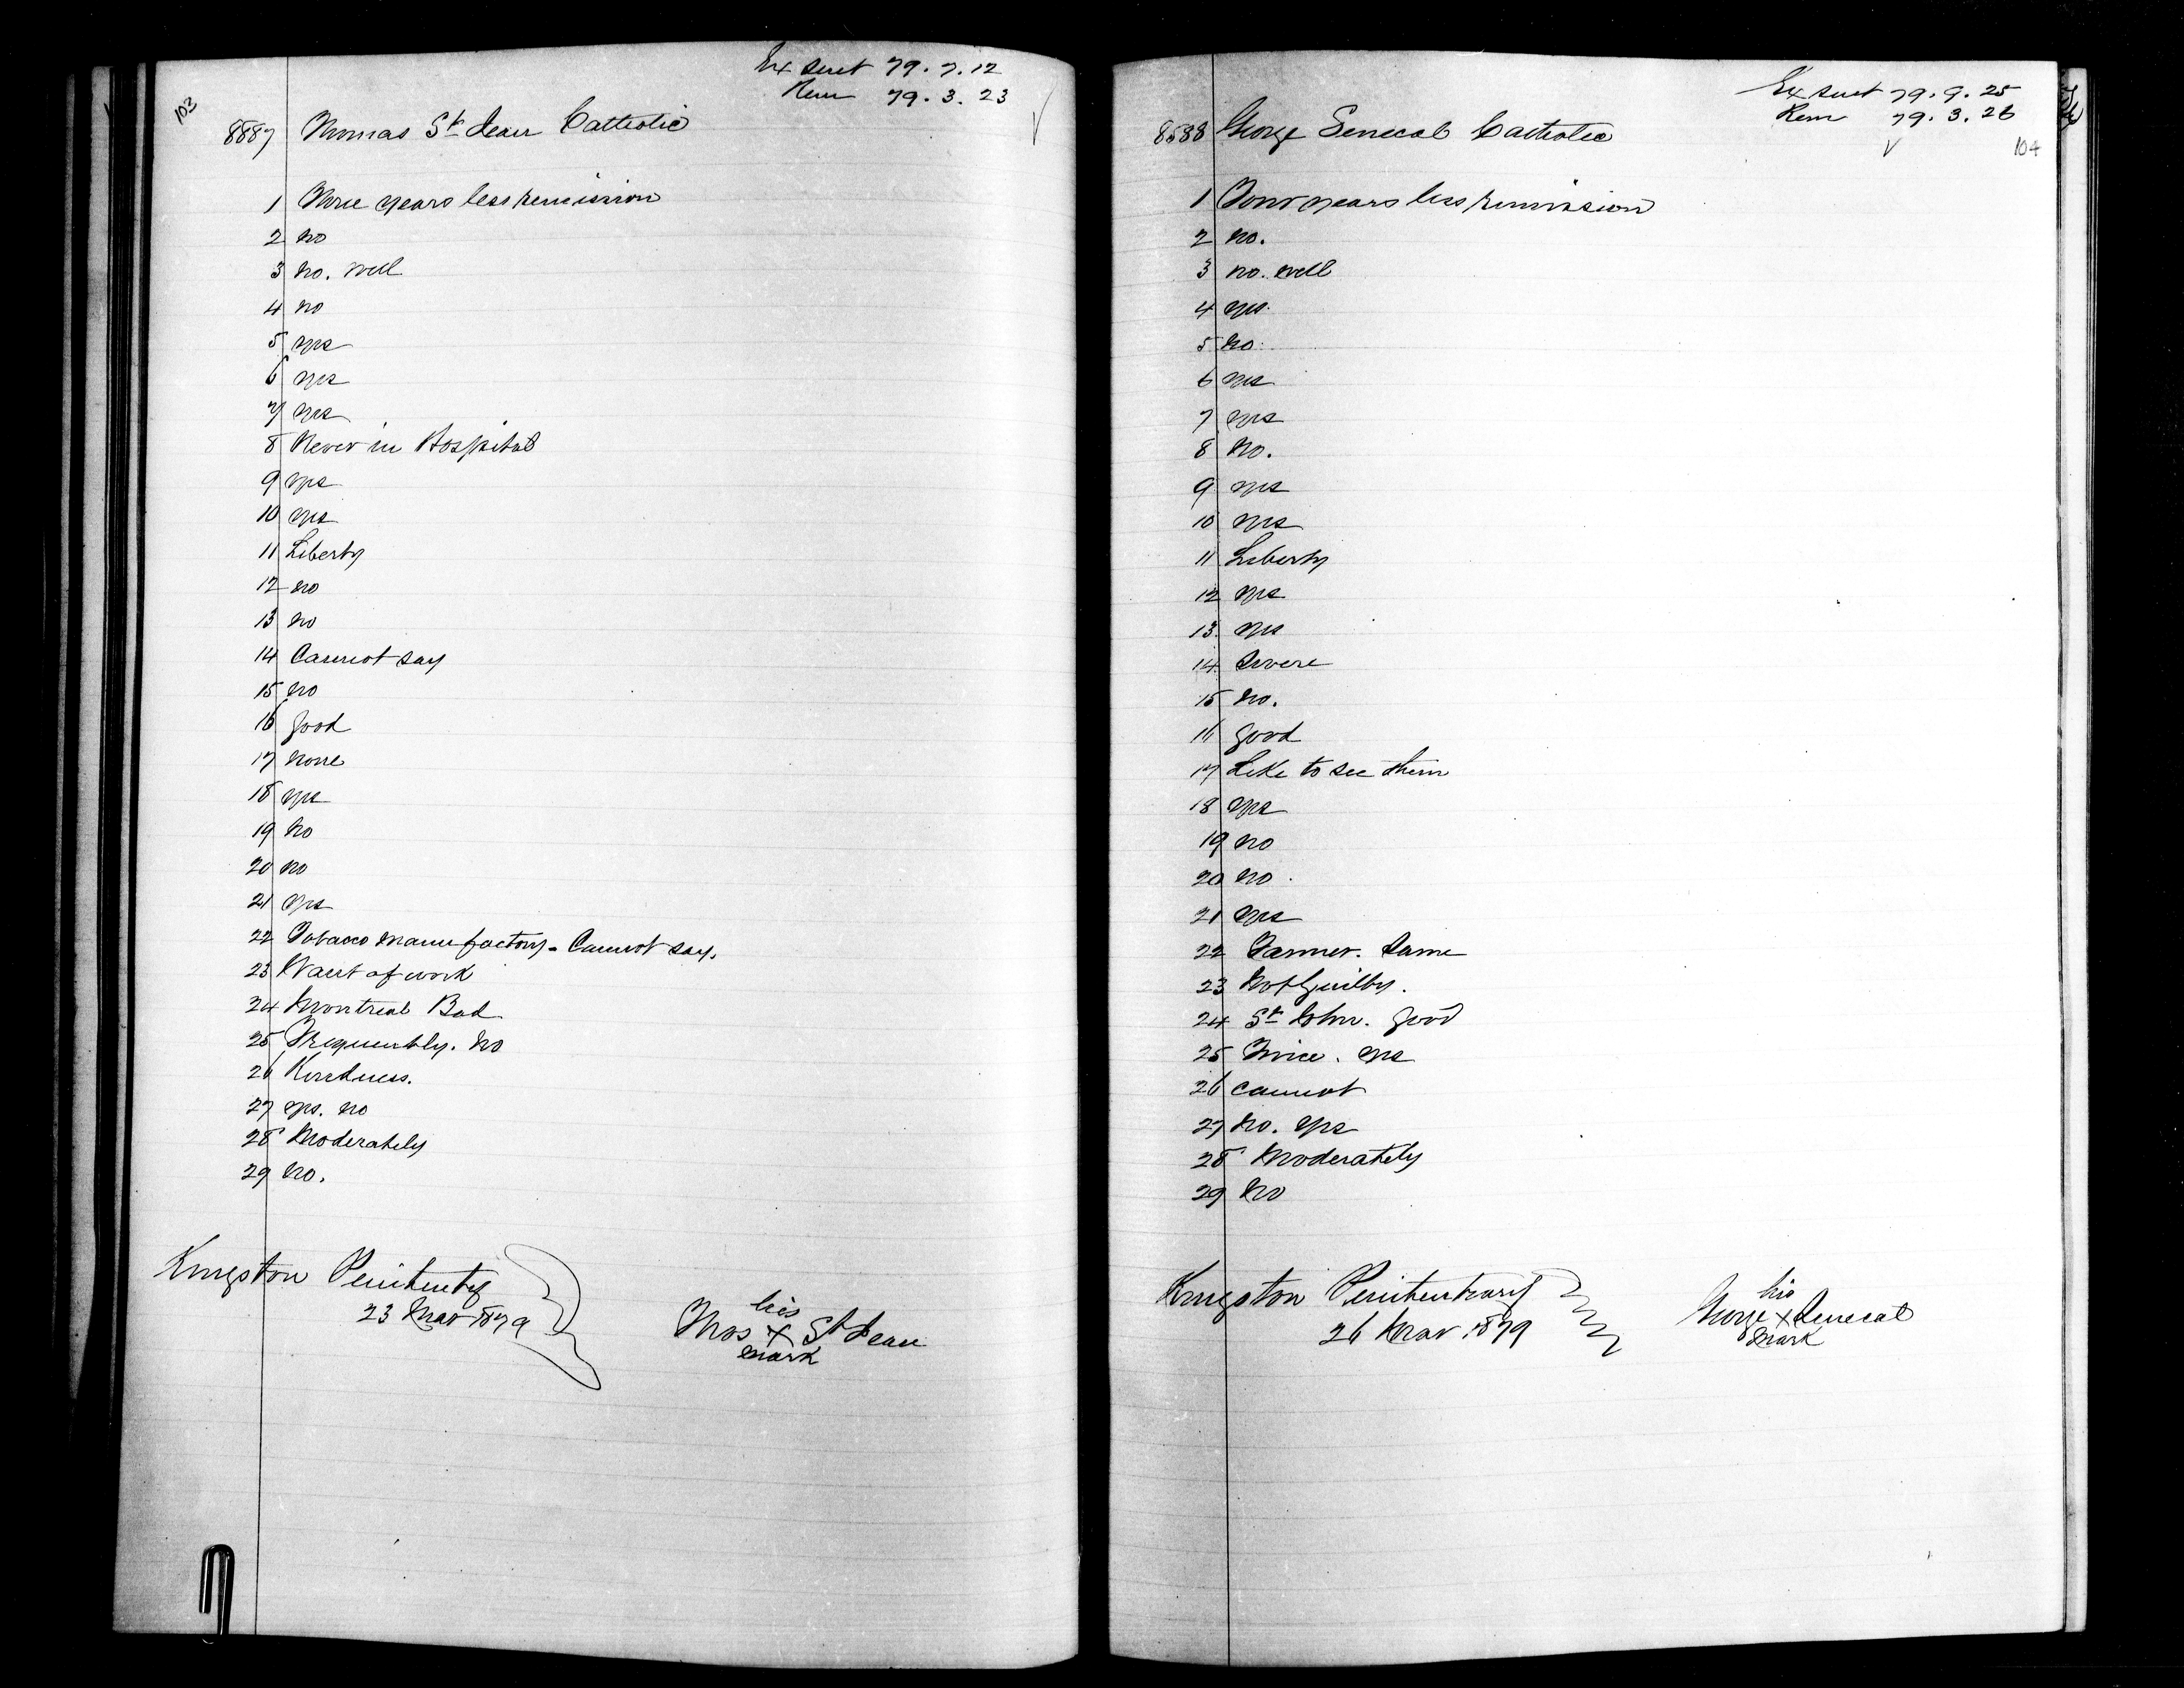 103
Ex Sent 79.7.12
Rem 79.3.23
8887 Thomas St Jean Catholic
1 Three years less remission
2 no
3 no. well
4 no
5 yes
6 yes
7 yes
8 Never in Hospital
9 yes
10 yes
11 Liberty
12 no
13 no
14 Cannot say
15 no
16 good
17 none
18 yes
19 no
20 no
21 yes
22 Tobacco manufactory - Cannot say.
23 Want of work
24 Montreal Bad
25 Frequently. no
26 Kindness.
27 yes. no
28 Moderately
29 no.
Kingston Penitenty
23 Mar 1879
his
Thos X St Jean
mark
Ex Sent 79.9.25
Rem 79.3.26
104
8588 George Senecal Catholic
1 Four years less remission
2 no.
3 no. well
4 yes.
5 no.
6 yes
7 yes
8 No.
9 yes
10 yes
11 Liberty
12 yes
13. yes
14 Severe
15 no.
16 good
17 Like to see them
18 yes
19 no
20 no.
21 yes
22 Farmer. Same
23 Not Guilty.
24 St John. good
25 Twice. yes
26 cannot
27 No. yes
28 Moderately
29 No
Kingston Penitentiary
26 Mar 1879
his
George X Senecal
mark